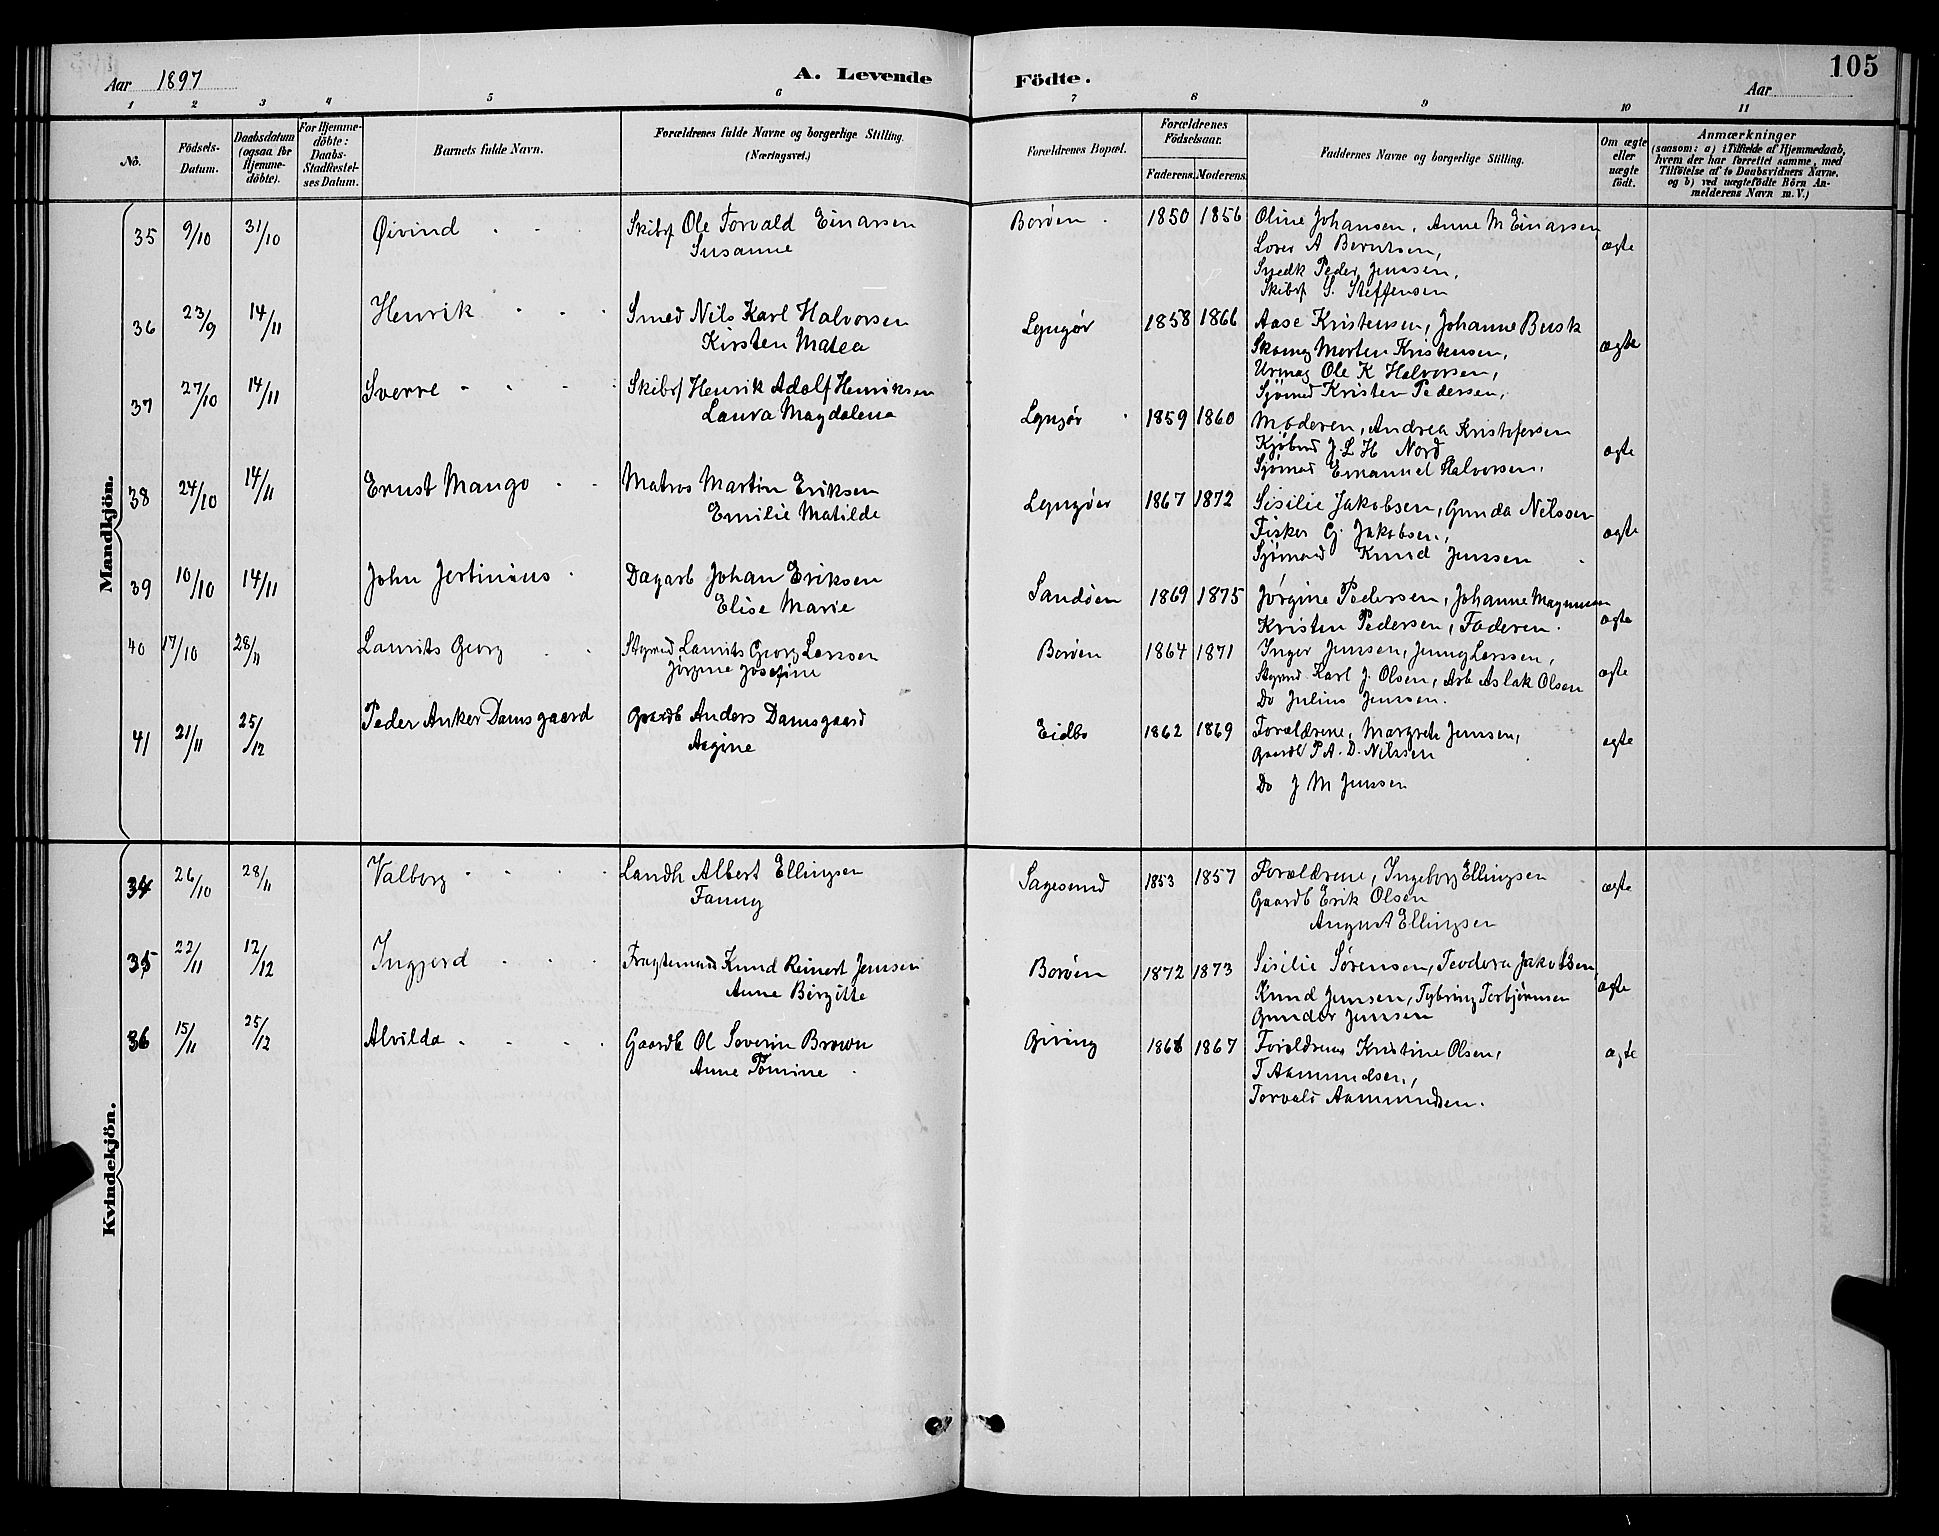 105
Aar 1897
A. Levende Födte.
Aar
1 2 3 4 5 6 7 8 9 10 11
No.
Födsels-Datum.
Daabsdatum (ogsaa for Hjemme-döbte).
For Hjemme-döbte: Daabs-Stadfæstel-ses Datum.
Barnets fulde Navn.
Forældrenes fulde Navne og borgerlige Stilling. (Næringsvei.)
Forældrenes Bopæl.
Forældrenes Födselsaar.
Faderens. Moderens.
Faddernes Navne og borgerlige Stilling.
Om ægte eller uægte födt.
Anmærkninger
(saasom: a) i Tilfælde af Hjemmedaab,
hvem der har forrettet samme, med
Tilföielse af to Daabsvidners Navne,
og b) ved uægtefödte Börn An-
melderens Navn m. V.)
Mandkjön.
35 9/10 31/10 Øivind Skibsf Ole Torvald Einarsen Borøen 1850 1856 Oline Johansen, Anne M Einarsen ægte
Susanne Lods A Berntsen,
Snedk Peder Jenssen,
Skibsf S. Steffensen
36 23/9 14/11 Henrik Smed Nils Karl Halvorsen Lyngør 1858 1866 Aase Kristensen, Johanne Busk ægte
Kirsten Matea Skomag Morten Kristensen,
Urmag Ole K Halvorsen,
Sjømd Kristen Pedersen,
37 27/10 14/11 Sverre Skibsf Henrik Adolf Henriksen Lyngør 1859 1860 Moderen, Andrea Kristofersen ægte
Laura Magdalena Kjøbmd J L H Nord
Sjømd Emanuel Halvorsen.
38 24/10 14/11 Ernst Mango Matros Martin Eriksen Lyngøer 1867 1872 Sisilie Jakobsen, Gunda Nilssen ægte
Emilie Matilde Fisker Cj. Jakobsen,
Sjømand Knud Jenssen
39 10/10 14/11 John Jertinius Dagarb Johan Eriksen Sandøen 1869 1875 Jørgine Pedersen, Johanne Magnussen ægte
Elise Marie Kristen Pedersen, Faderen.
40 17/10 28/11 Laurits Georg Styrmd Laurits Georg Larssen Borøen 1864 1871 Inger Jenssen, Jenny Larssen, ægte
Jørgine Josefine Styrmd Karl J. Olsen, Arb Aslak Olsen
Do Julius Jenssen.
41 21/11 25/12 Peder Anker Damsgaard Gaardb Anders Damsgaard Eidbo 1862 1869 Forældrene, Margrete Jenssen, ægte
Aagine Gaardb P. A. D. Nilssen
Do J M Jenssen
Kvindekjön.
34 26/10 28/11 Valborg Landh Albert Ellingsen Sagesund 1853 1857 Forældrene, Ingeborg Ellingsen ægte
Fanny Gaardb Erik Olsen
August Ellingsen
35 22/11 12/12 Ingjerd Fragtemand Knud Reinert Jenssen Borøen 1872 1873 Sisilie Sørensen, Teodora Jakobsen ægte
Anne Birgitte Knud Jenssen, Tybring Torbjørnsen
Gunder Jenssen
36 15/11 25/12 Alvilda Gaardb Ol Severin Brown Giving 1867 Forældrene Kristine Olsen, ægte
Anne Tomine T Aamundsen,
Torvald Aamundsen.